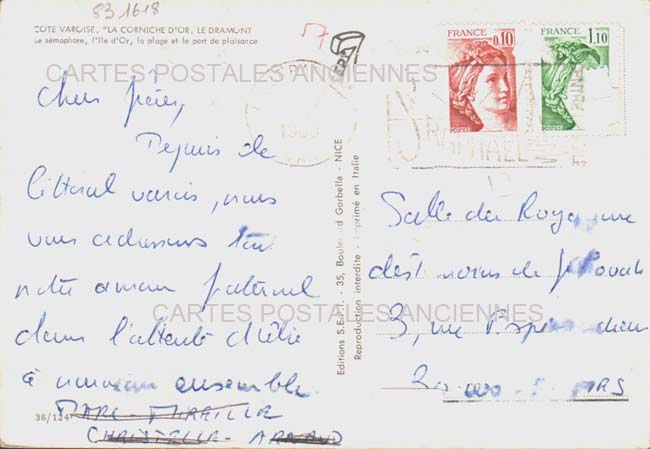 83 1618
COTE VAROISE, "LA CORNICHE D'OR, LE DRAMONT
Le sémaphore, l'Ile d'Or, la plage et le port de plaisance
FRANCE 0,10
POSTES
FRANCE 1,10
POSTES
RAPHAEL
CARTES POSTALES ANCIENNES
Chers frères,
Depuis le
littoral varois, nous
vous adressons tout
notre amour fraternel
dans l'attente d'être
à nouveau ensemble.
MARC - MIREILLE
CHRISTELLE - ARNAUD
36/124
Editions S.E.P.T. : 35, Boulevard Gorbella - NICE
Reproduction interdite - Imprimé en Italie
Salle du Royaume
des
3, rue
CARTES POSTALES ANCIENNES